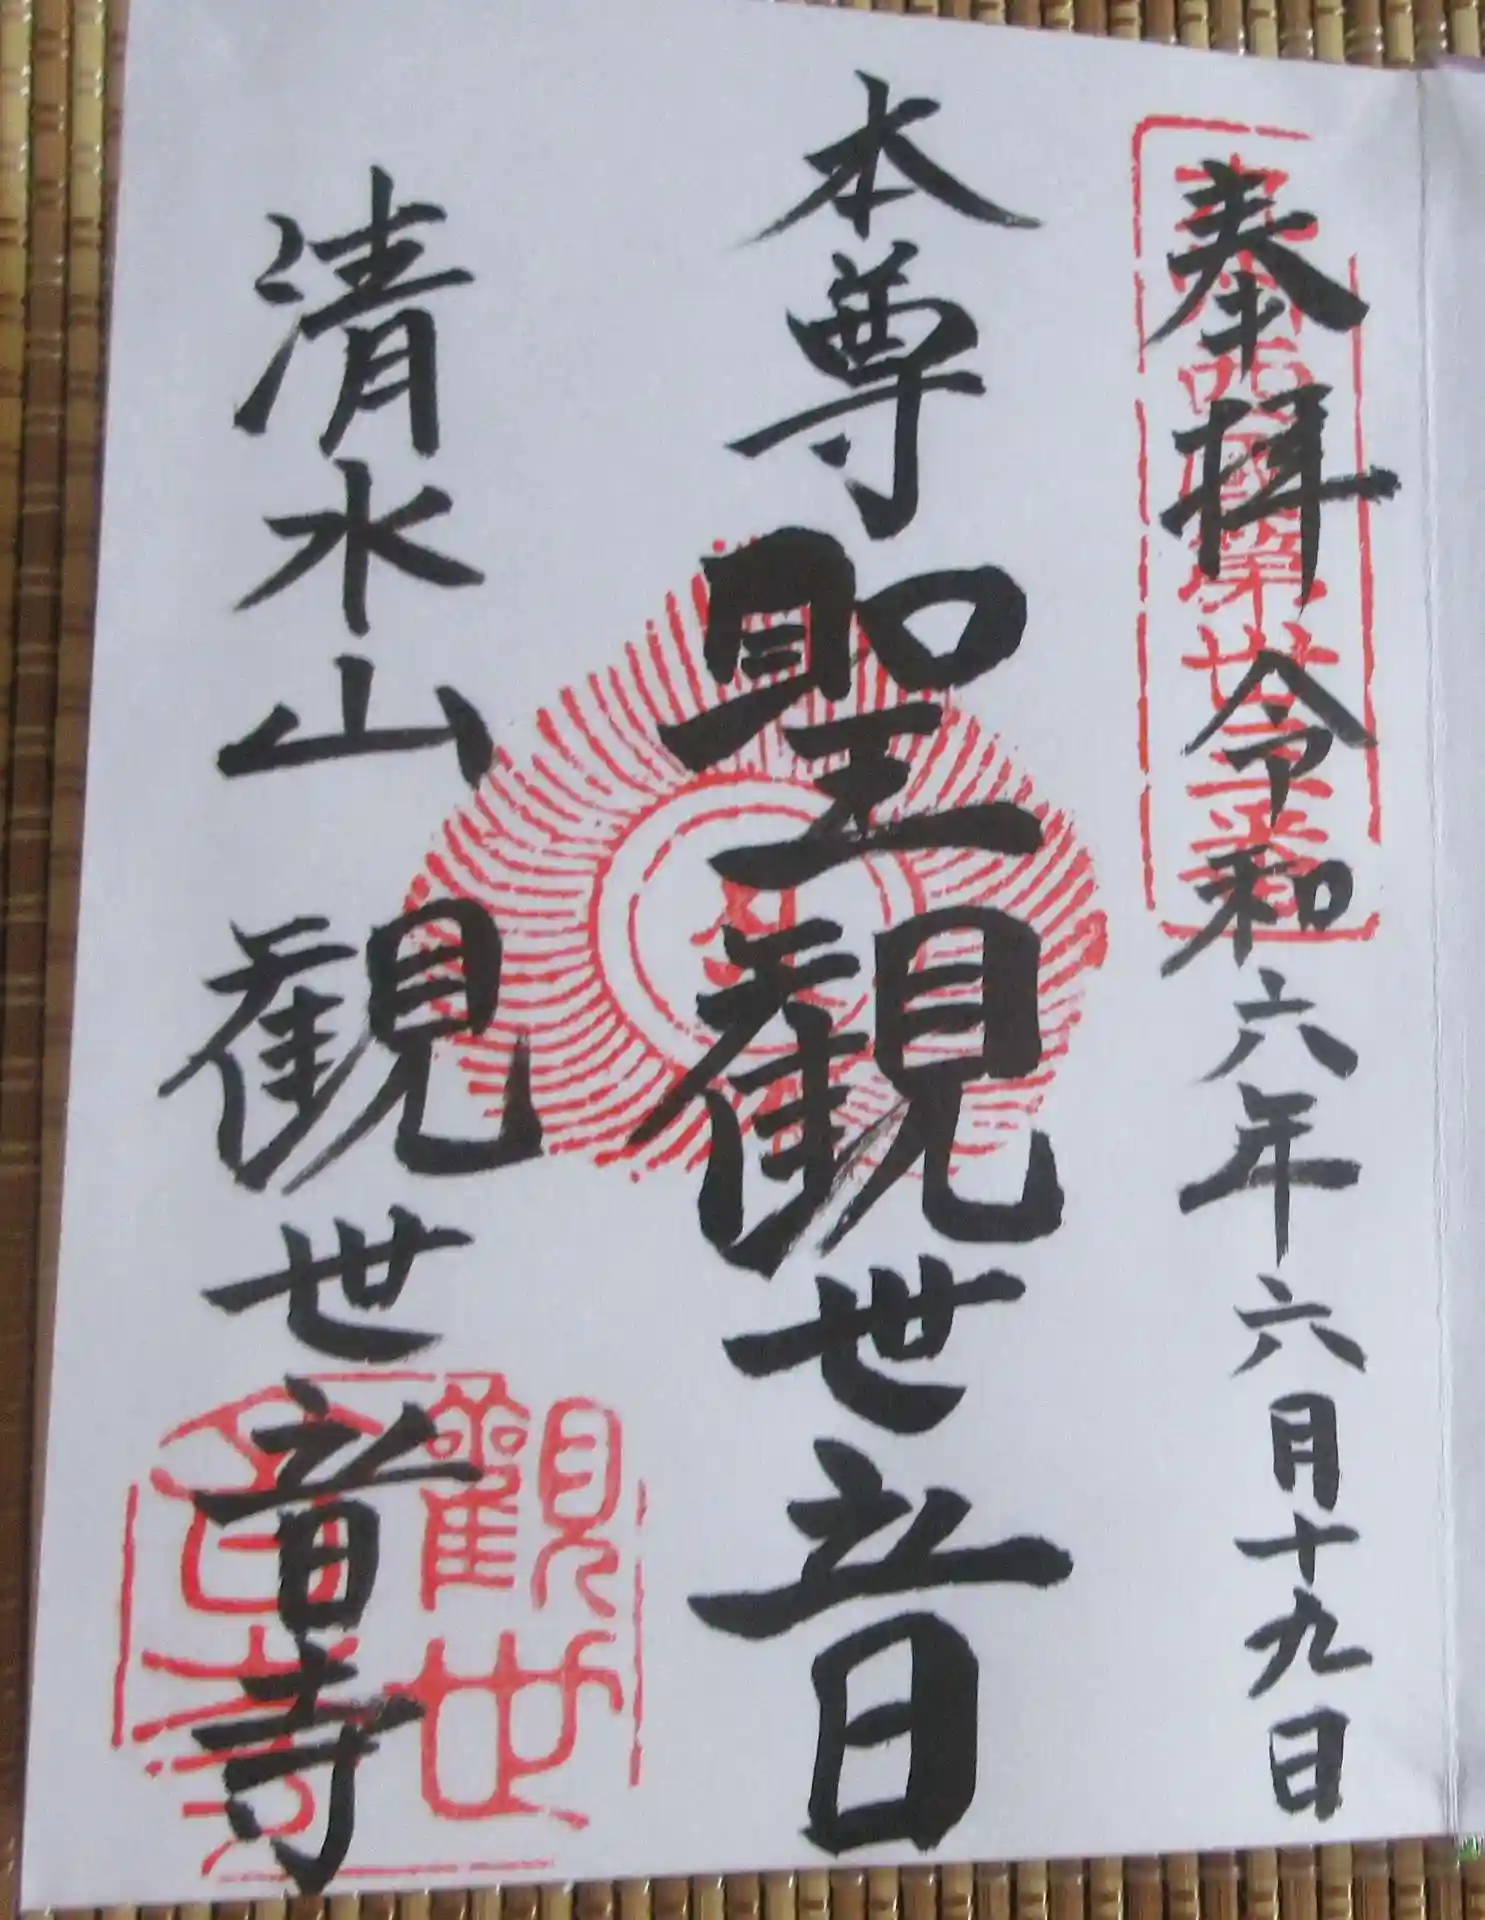 奉拝 令和六年六月十九日
本尊 聖観世音
清水山 観世音寺
観世
音寺